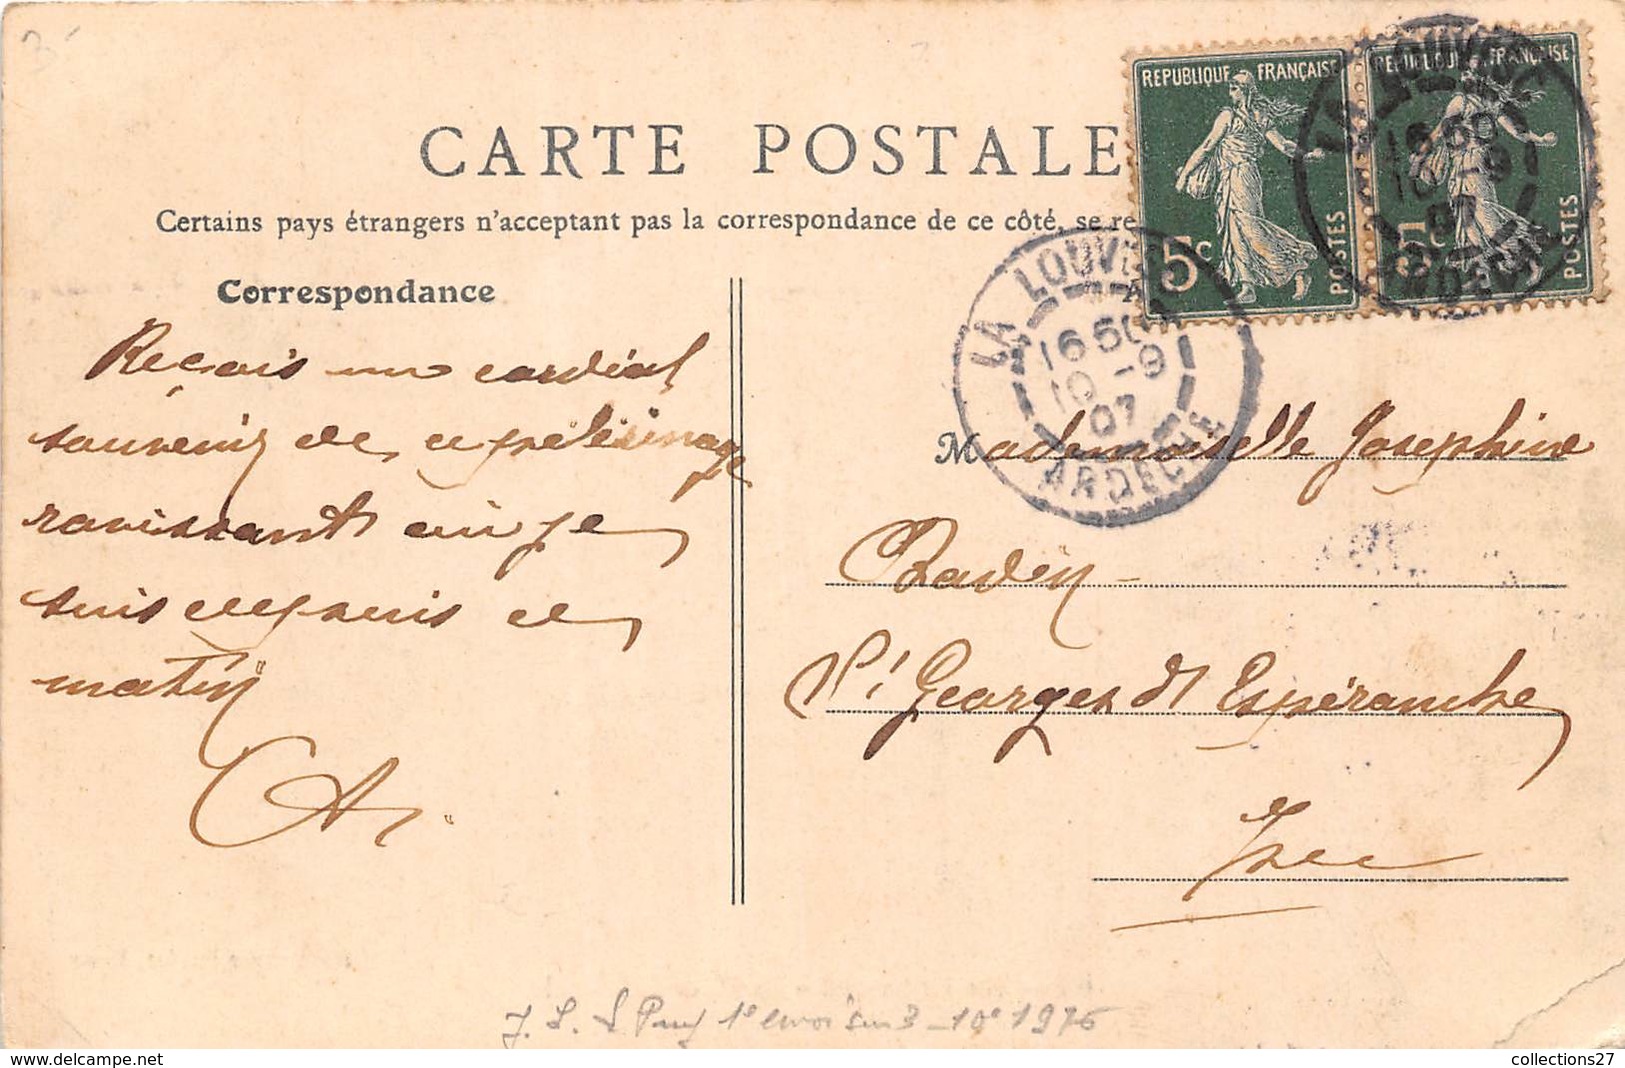 3
REPUBLIQUE FRANÇAISE
5c
POSTES
REPUBLIQUE FRANÇAISE
5c
POSTES
LA LOUVESC
16 50
10 -9
07
ARDECHE
CARTE POSTALE
Certains pays étrangers n'acceptant pas la correspondance de ce côté, se re
LA LOUVESC
16 50
10 -9
07
ARDECHE
Correspondance
Reçois un cordial
souvenir de ce pèlérinage
ravissant où je
suis depuis ce
matin
Mademoiselle Josephine
St Georges d'Esperanche
Isere
1e envoi sur 3 - 10e 1976
collections27